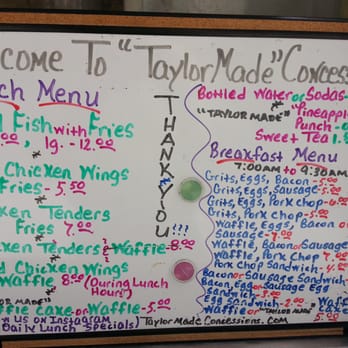 come To "Taylor Made" Concess
ch Menu
Fish with Fries
00, lg. - 12.00
Chicken Wings
Fries - 5.50
ken Tenders
Fries 7.00
ken Tenders & Waffle - 8.00
d Chicken Wings
Waffle 8.00 (During Lunch Hours)
OR MADE"
affle cake or Waffle - 5.00
w Us on Instagram
Daily Lunch Specials)
THANK YOU!!!
TaylorMadeConcessions.com
Bottled Water or Sodas -
"TAYLOR MADE" "Pineapple
Punch -
Sweet Tea 1.
Breakfast Menu
7:00AM to 9:30AM
Grits, Eggs, Bacon - 5.00
Grits, Eggs, Sausage - 5.00
Grits, Eggs, Pork Chop - 6.00
Grits, Pork Chop - 5.00
Waffle, Eggs, Bacon or
Sausage - 7.00
Waffle, Bacon or Sausage
Waffle, Pork Chop 7.00
Pork Chop Sandwich - 4.00
Bacon or Sausage Sandwich
Bacon, Egg or Sausage Egg
Sandwich - 3.00
Egg Sandwich - 2.00
Waffle or "TAYLOR MADE" Waf
Cake 5.00